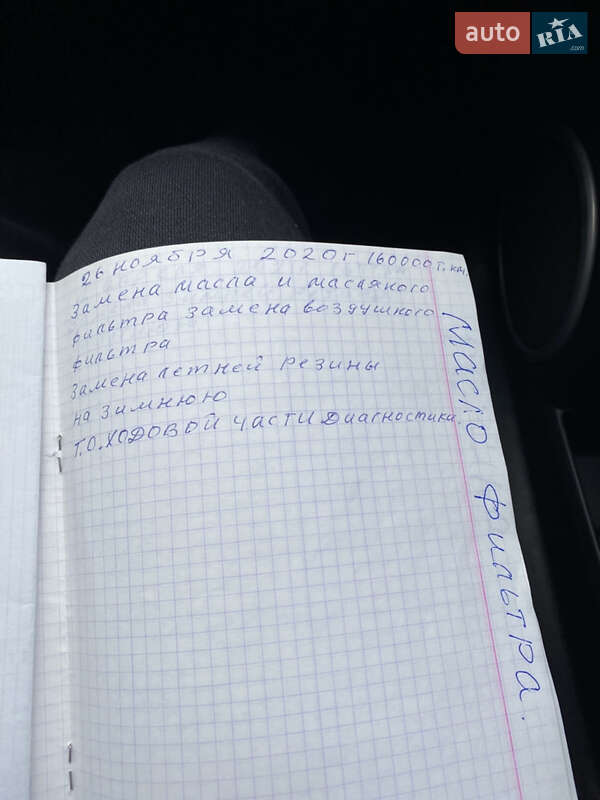 auto RIA .com
26 ноября 2020г 160000т.км.
Замена масла и масляного
фильтра замена воздушного
фильтра
Замена летней резины
на зимнюю
Т.О. ХОДОВОЙ ЧАСТИ Диагностика.
Масло фильтра.